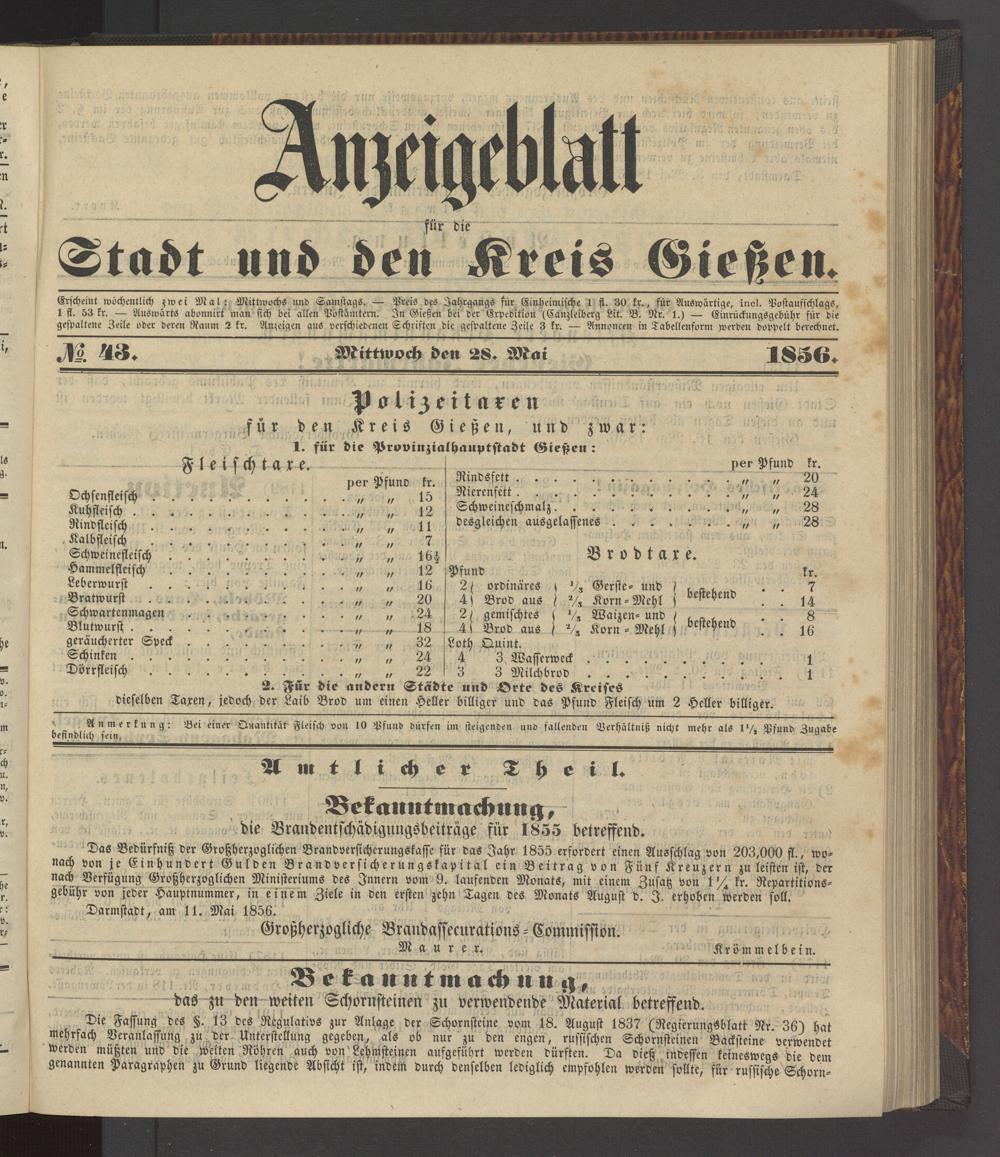 Anzeigeblatt
für die
Stadt und den Kreis Gießen.
Erscheint wöchentlich zwei Mal: Mittwochs und Samstags. — Preis des Jahrgangs für Einheimische 1 fl. 30 kr., für Auswärtige, incl. Postaufschlags,
1 fl. 53 kr. — Auswärts abonnirt man sich bei allen Postämtern. In Gießen bei der Expedition (Canzleiberg Lit. B. Nr. 1.) — Einrückungsgebühr für die
gespaltene Zeile oder deren Raum 2 kr. Anzeigen aus verschiedenen Schriften die gespaltene Zeile 3 kr. — Annoncen in Tabellenform werden doppelt berechnet.
No. 43. Mittwoch den 28. Mai 1856.
Polizeitaxen
für den Kreis Gießen, und zwar:
1. für die Provinzialhauptstadt Gießen:
Fleischtaxe.
per Pfund kr.
Ochsenfleisch . . . . . . . . . . „ „ 15
Kuhfleisch . . . . . . . . . . „ „ 12
Rindfleisch . . . . . . . . . . „ „ 11
Kalbfleisch . . . . . . . . . . „ „ 7
Schweinefleisch . . . . . . . . . . „ „ 16½
Hammelfleisch . . . . . . . . . . „ „ 12
Leberwurst . . . . . . . . . . „ „ 16
Bratwurst . . . . . . . . . . „ „ 20
Schwartenmagen . . . . . . . . . . „ „ 24
Blutwurst . . . . . . . . . . „ „ 18
geräucherter Speck . . . . . . . . „ „ 32
Schinken . . . . . . . . . . „ „ 24
Dörrfleisch . . . . . . . . . . „ „ 22
per Pfund kr.
Rindsfett . . . . . . . . . . „ „ 20
Nierenfett . . . . . . . . . . „ „ 24
Schweineschmalz . . . . . . . . . „ „ 28
desgleichen ausgelassenes . . . . . . „ „ 28
Brodtaxe.
Pfund kr.
2 } ordinäres { 1/3 Gerste- und } bestehend . . 7
4 } Brod aus { 2/3 Korn-Mehl } . . 14
2 } gemischtes { 1/3 Waizen- und } bestehend . . 8
4 } Brod aus { 2/3 Korn-Mehl } . . 16
Loth Quint.
4 3 Wasserweck . . . . . . . . . 1
3 3 Milchbrod . . . . . . . . . 1
2. Für die andern Städte und Orte des Kreises
dieselben Taxen, jedoch der Laib Brod um einen Heller billiger und das Pfund Fleisch um 2 Heller billiger.
Anmerkung: Bei einer Quantität Fleisch von 10 Pfund dürfen im steigenden und fallenden Verhältniß nicht mehr als 1½ Pfund Zugabe
befindlich sein.
Amtlicher Theil.
Bekanntmachung,
die Brandentschädigungsbeiträge für 1855 betreffend.
Das Bedürfniß der Großherzoglichen Brandversicherungskasse für das Jahr 1855 erfordert einen Ausschlag von 203,000 fl., wo-
nach von je Einhundert Gulden Brandversicherungskapital ein Beitrag von Fünf Kreuzern zu leisten ist, der
nach Verfügung Großherzoglichen Ministeriums des Innern vom 9. laufenden Monats, mit einem Zusatz von 1¼ kr. Repartitions-
gebühr von jeder Hauptnummer, in einem Ziele in den ersten zehn Tagen des Monats August d. J. erhoben werden soll.
Darmstadt, am 11. Mai 1856.
Großherzogliche Brandassecurations-Commission.
Maurer. Krömmelbein.
Bekanntmachung,
das zu den weiten Schornsteinen zu verwendende Material betreffend.
Die Fassung des §. 13 des Regulativs zur Anlage der Schornsteine vom 18. August 1837 (Regierungsblatt Nr. 36) hat
mehrfach Veranlassung zu der Unterstellung gegeben, als ob nur zu den engen, russischen Schornsteinen Backsteine verwendet
werden müßten und die weiten Röhren auch von Lehmsteinen aufgeführt werden dürften. Da dieß indessen keineswegs die dem
genannten Paragraphen zu Grund liegende Absicht ist, indem durch denselben lediglich empfohlen werden sollte, für russische Schorn-